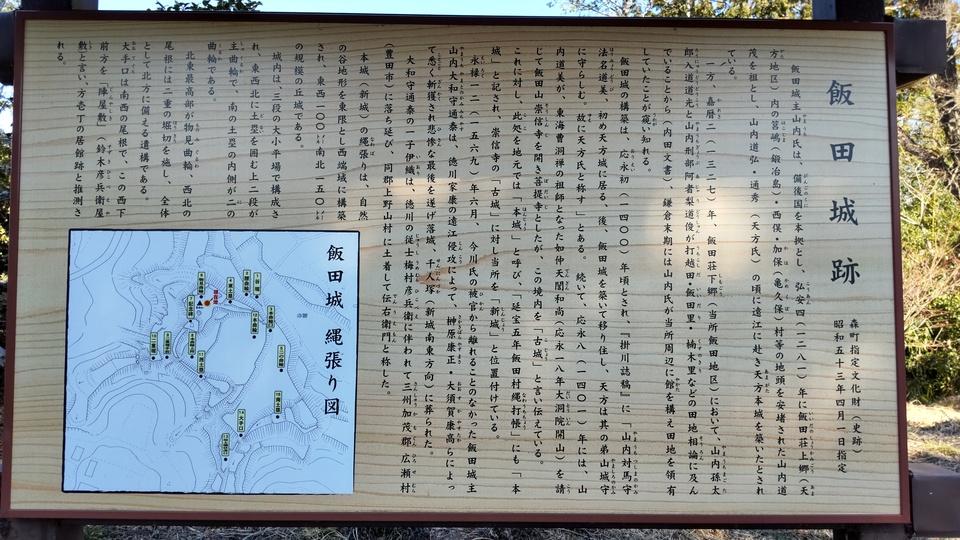 飯田城跡
森町指定文化財（史跡）
昭和五十三年四月一日指定
飯田城主山内氏は、備後国を本拠とし、弘安四（一二八一）年に飯田荘上郷（天
方地区）内の筥嶋（鍛冶島）・西俣・加保（亀久保）村等の地頭を安堵された山内道
茂を祖とし、山内道弘・通秀（天方氏）の頃に遠江に赴き天方本城を築いたとされ
ている。
一方、嘉暦二（一三二七）年、飯田荘下郷（当所飯田地区）において、山内孫太
郎入道道光と山内刑部阿者梨道俊が打越田・飯田里・楠木里などの田地相論に及ん
でいるとから（内田文書）、鎌倉末期には山内氏が当所周辺に館を構え田地を領有
していたことが窺い知れる。
飯田城の構築は、応永初（一四〇〇）年頃とされ、『掛川誌稿』に「山内対馬守
法名道美、初め天方城に居る、後、飯田城を築いて移り住し、天方は其の弟山城守
に守らしむ、故に天方氏と称す」とある。続いて、応永八（一四〇一）年には、山
内道美が、東海曹洞禅の祖師となった如仲天誾和尚（応永一八年大洞院開山）を請
じて飯田山崇信寺を開き菩提寺としたが、この境内を「古城」と言い伝えている。
これに対し、此処を地元では「本城」と呼び、「延宝五年飯田村縄打帳」にも「本
城」と記され、崇信寺の「古城」に対し当所を「新城」と位置付けている。
永禄一二（一五六九）年六月、今川氏の被官から離れることのなかった飯田城主
山内大和守通泰は、徳川家康の遠江侵攻によって、榊原康正・大須賀康高らによっ
て悉く斬獲され悲惨な最後を遂げ落城、千人塚（新城南東方向）に葬られた。
大和守通泰の一子伊織は、徳川の従士梅村彦兵衛に伴われて三州加茂郡広瀬村
（豊田市）に落ち延び、同郡上野山村に土着して伝右衛門と称した。
本城（新城）の縄張りは、自然
の谷地形を東限とし西端域に構築
され、東西一〇〇㍍南北一五〇㍍
の規模の丘城である。
城内は、三段の大小平場で構成さ
れ、東西北に土塁を囲む上二段が
主曲輪で、南の土塁の内側が二の
曲輪である。
北東最高部が物見曲輪、西北の
尾根には二重の堀切を施し、全体
として北方に備える遺構である。
大手口は南西の尾根で、この西下
前方を「陣屋敷」（鈴木彦兵衛屋
敷と言い、方壱丁の居館跡と推測さ
れる。
飯田城 縄張り図